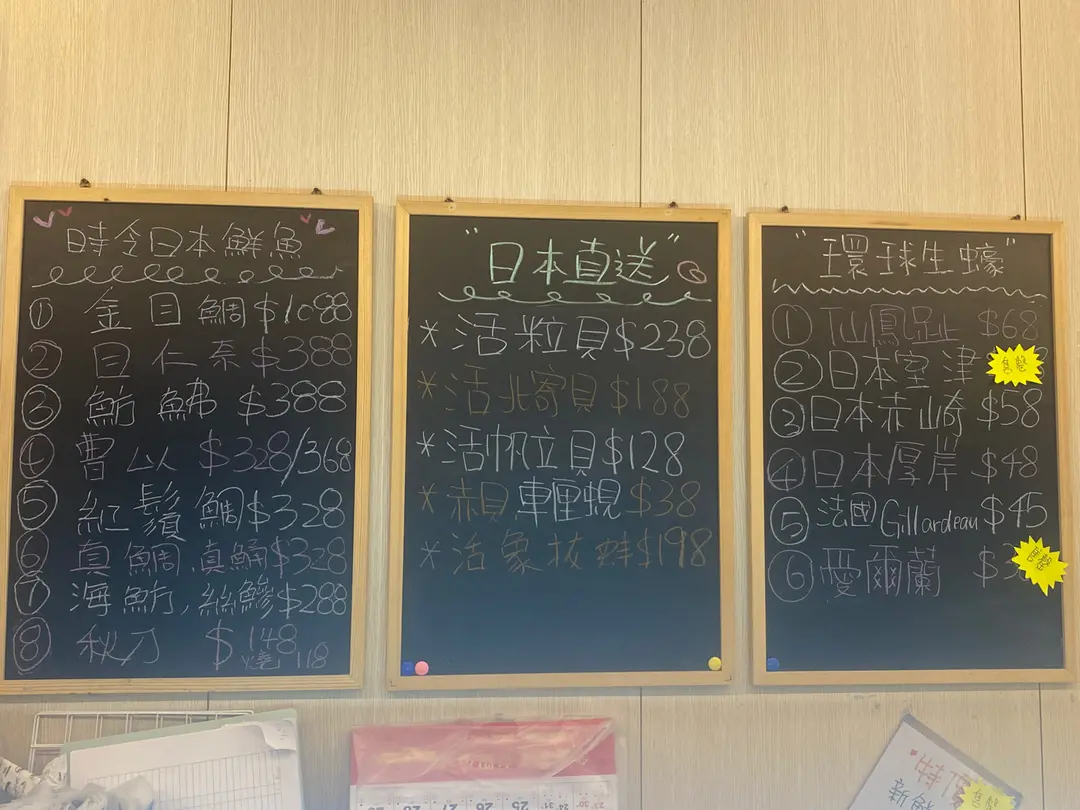 時令日本鮮魚
① 金目鯛 $1088
② 目仁奈 $388
③ 魴鮄 $388
④ 曹以 $328/368
⑤ 紅鬚鯛 $328
⑥ 真鯛,真鯒 $328
⑦ 海魴,絲鰺 $288
⑧ 秋刀 $148
燒 118
"日本直送"
* 活粒貝 $238
* 活北寄貝 $188
* 活帆立貝 $128
* 赤貝 車厘蜆 $38
* 活象拔蚌 $198
"環球生蠔"
① 仙鳳趾 $68
② 日本室津
售罄
③ 日本赤崎 $58
④ 日本厚岸 $48
⑤ 法國 Gillardeau $45
⑥ 愛爾蘭 $3